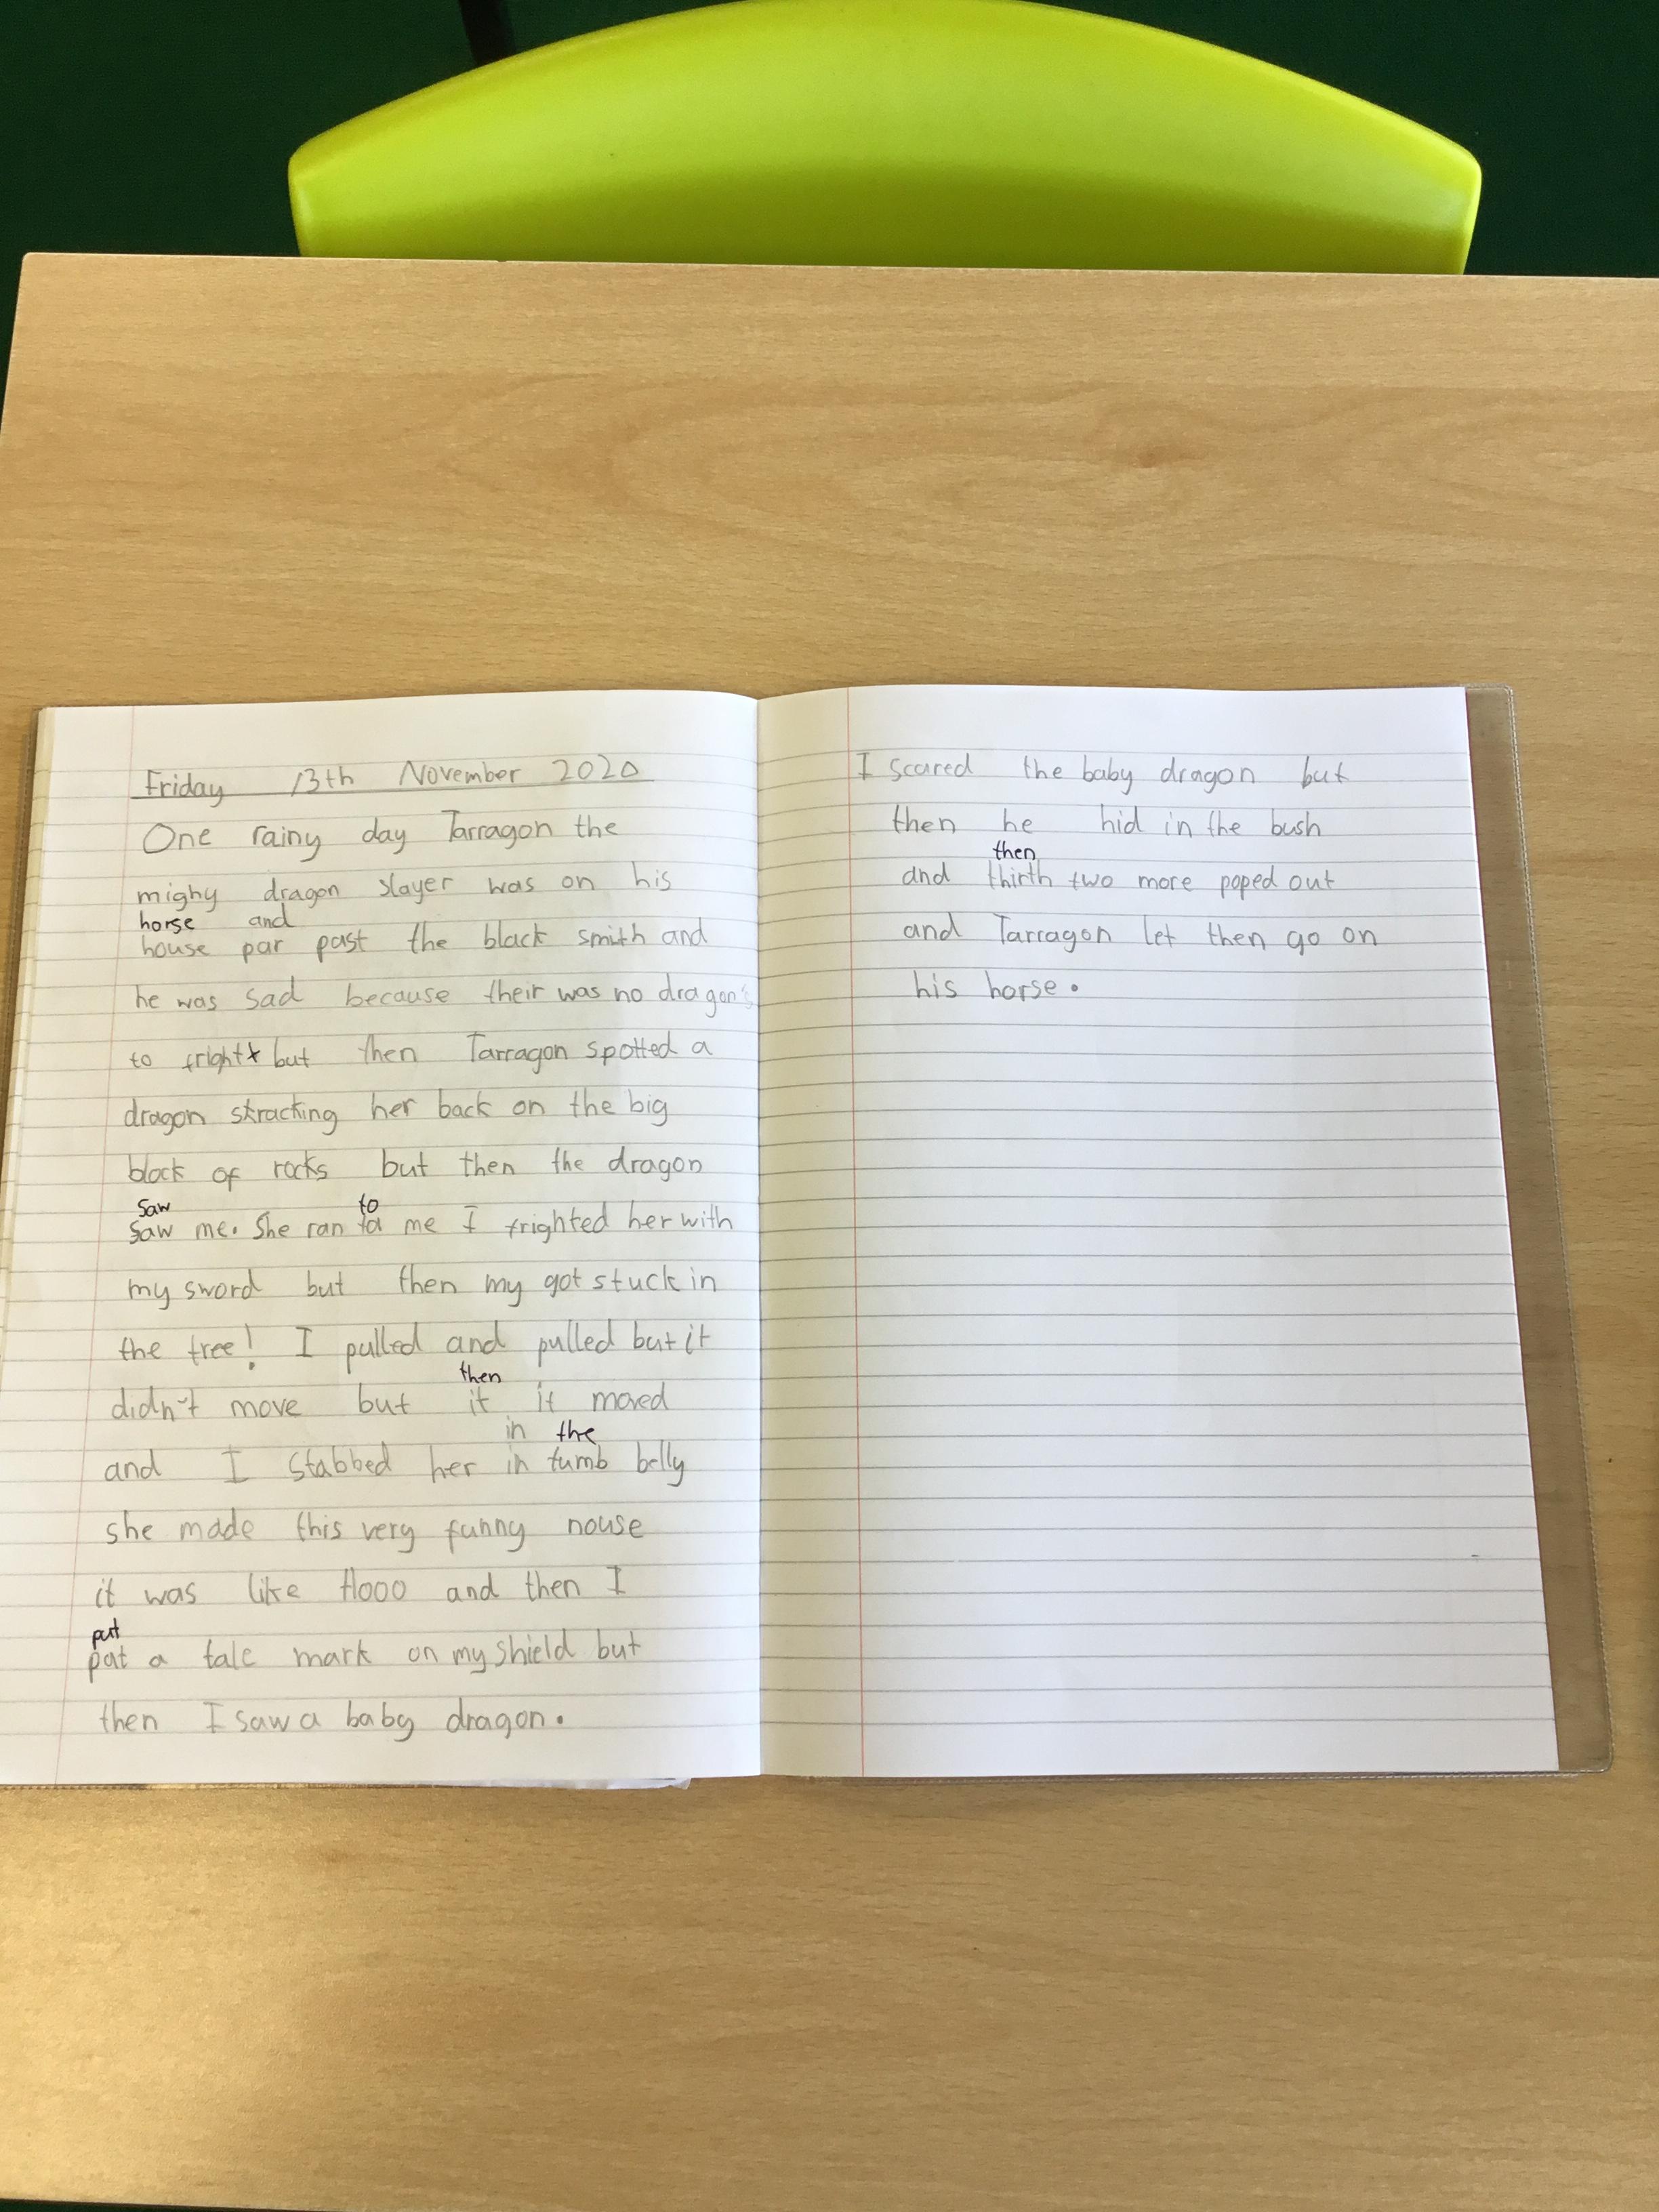 Friday 13th November 2020
One rainy day Tarragon the
mighy dragon slayer was on his
horse and
house par past the black smith and
he was sad because their was no dragon's
to fright but then Tarragon spotted a
dragon stracking her back on the big
block of rocks but then the dragon
saw to
saw me. She ran to me I frighted her with
my sword but then my got stuck in
the tree! I pulled and pulled but it
then
didn't move but it it moved
in the
and I stabbed her in tumb belly
she made this very funny nouse
it was like flooo and then I
put
pat a tale mark on my shield but
then I saw a baby dragon.
I scared the baby dragon but
then he hid in the bush
then
and thirth two more poped out
and Tarragon let then go on
his horse.